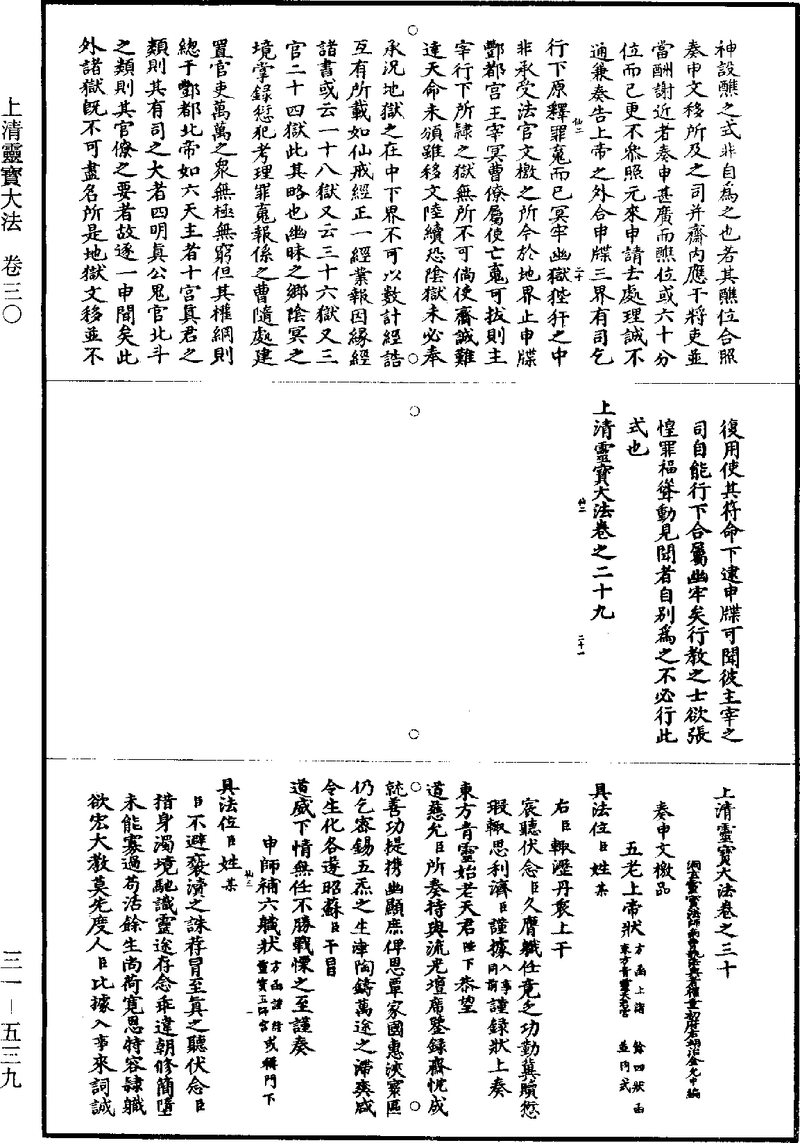 上清靈寶大法　卷三〇
三一－五三九
神設醮之式非自爲之也者其醮位合照
奏申文移所及之司并齋内應干將吏並
當酬謝近者奏申甚廣而醮位或六十分
位而已更不參照元來申請去處理誠不
通兼奏告上帝之外合申牒三界有司乞
行下原釋罪䰟而已冥牢幽獄狴犴之中
非承受法官文檄之所今於地界止申牒
酆都宫王宰冥曹僚屬使亡䰟可拔則主
宰行下所隸之獄無所不可倘使齋誠難
達天命未頒雖移文陸續恐陰獄未必奉
承況地獄之在中下界不可以數計經誥
互有所載如仙戒經正一經業報因緣經
諸書或云一十八獄又云三十六獄又三
官二十四獄此其略也幽昧之鄉陰冥之
境掌録愆犯考理罪䰟報係之曹隨處建
置官吏萬萬之衆無極無窮但其權綱則
總于酆都北帝如六天主者十宫真君之
類則其有司之大者四明真公鬼官北斗
之類則其官僚之要者故逐一申聞矣此
外諸獄既不可盡名所是地獄文移並不
仙二
二十
復用使其符命下逮申牒可聞彼主宰之
司自能行下合屬幽牢矣行教之士欲張
惶罪福聳動見聞者自别爲之不必行此
式也
上清靈寶大法卷之二十九
仙二
二十一
上清靈寶大法卷之三十
洞玄靈寶法師南曹執法典者權童初府右翊治金允中編
奏申文檄品
五老上帝狀方函上請　餘四狀函
東方青靈天尊宫　並内式
具法位臣姓某
右臣輙瀝丹衷上干
宸聽伏念臣久膺職任竟乏功勤冀贖愆
瑕輙思利濟臣謹據入事同前謹録狀上奏
東方青靈始老天君陛下恭望
道慈允臣所奏特與流光壇席鑒録齋忱成
就善功提攜幽顯庶俾恩覃家國惠浹寰區
仍乞審錫五炁之生津陶鑄萬途之滯爽咸
令生化各遂昭蘇臣干冒
道威下情無任不勝戰慄之至謹奏
申師補六職狀方函請符
靈寶五師宫或稱門下
仙三
一
具法位臣姓某
臣不避褻瀆之誅荐冒至真之聽伏念臣
措身濁境馳識靈途存念乖違朝修簡墮
未能寡過苟活餘生尚荷寬恩特容隷職
欲宏大教莫先度人臣比據入事來詞誠